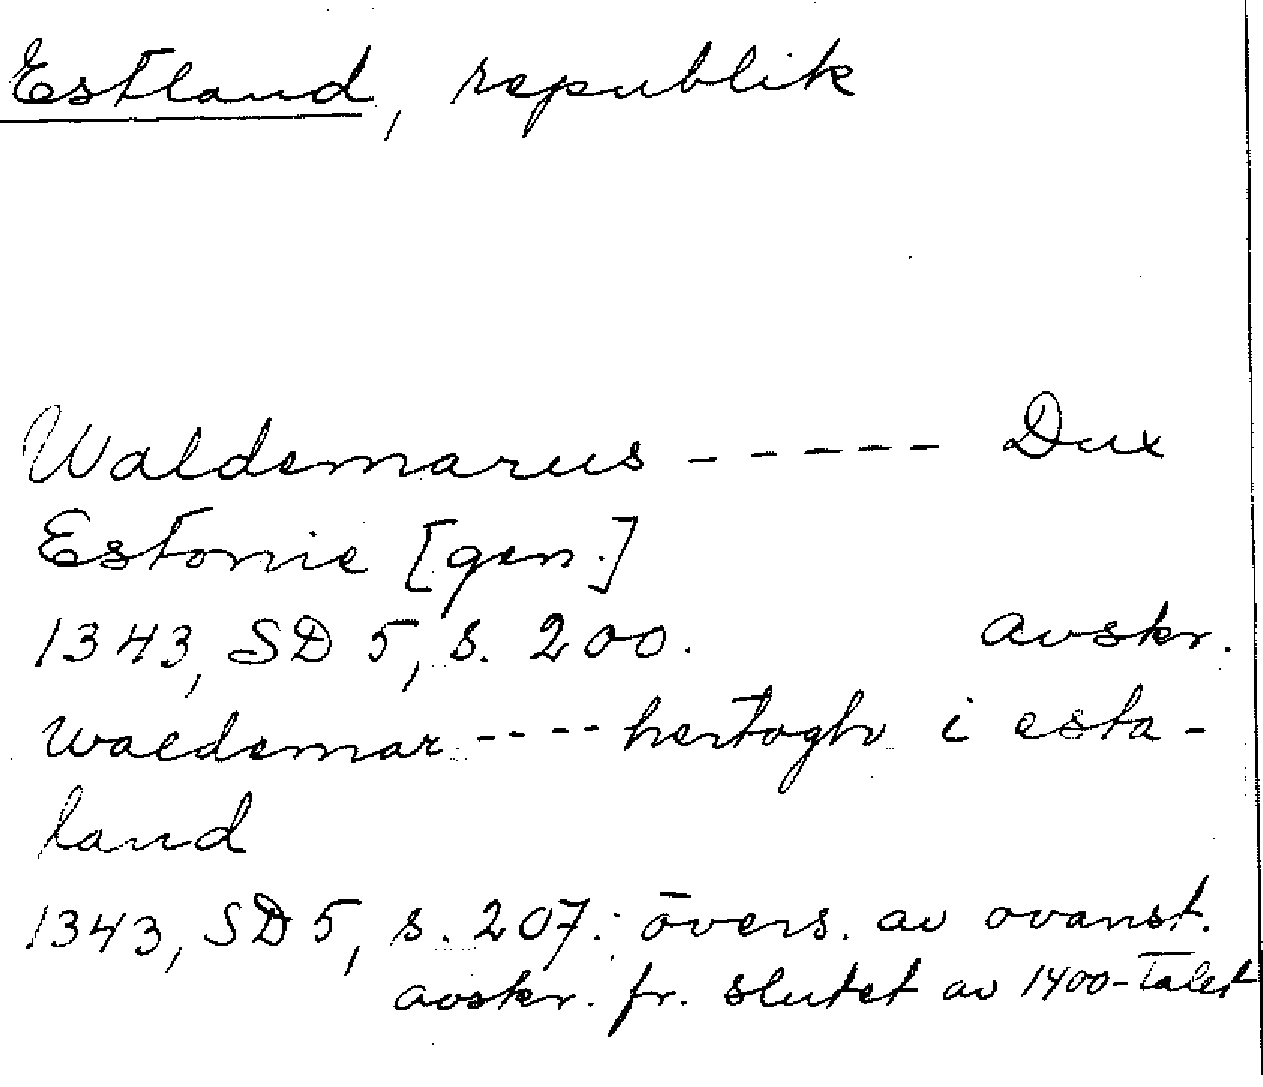 Estland, republik
Waldemarus ----- Dux
Estonie [gen.]
1343, SD 5, s. 200. avskr.
waldemar ---- hertogh i esta-
land
1343, SD 5, s. 207: övers. av ovanst.
avskr. fr. slutet av 1400-talet